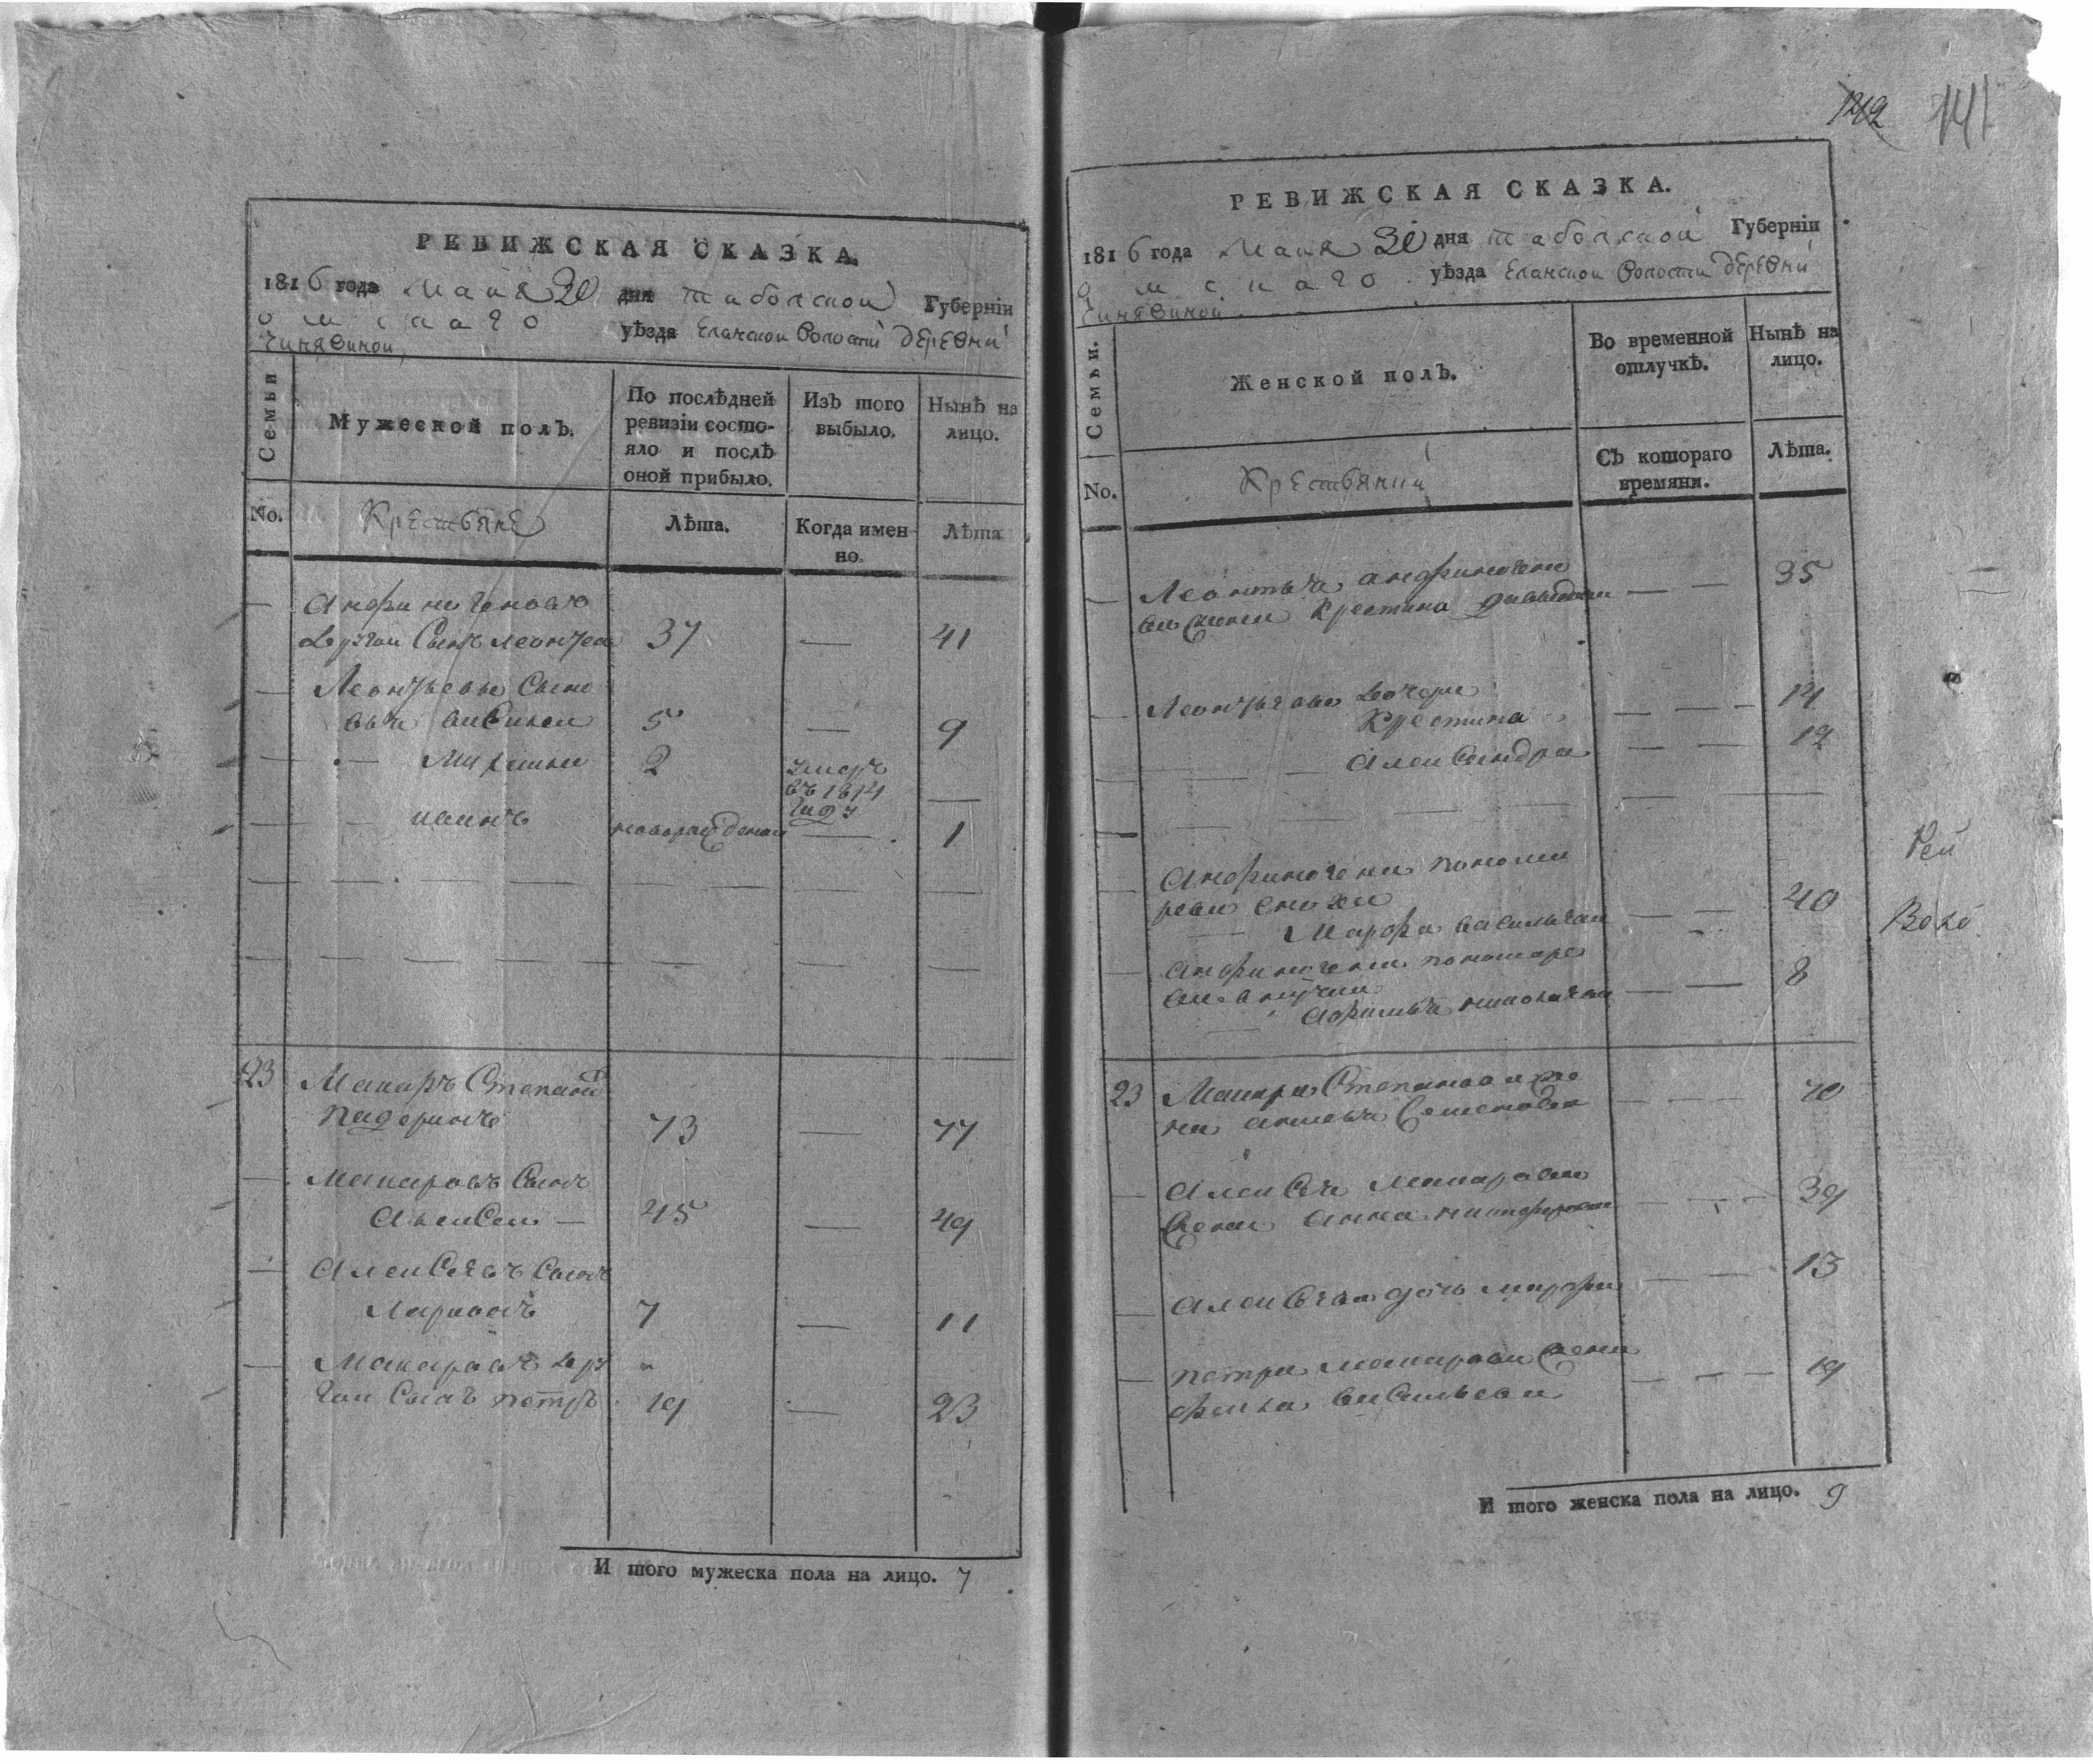 РЕВИЖСКАЯ СКАЗКА.
1816 года Маия 30 дня таболской Губерніи
омскаго уѣзда Еланской волости деревни
Синявиной
Семьи
Мужеской полъ.
По послѣдней ревизіи состояло и послѣ оной прибыло.
Изъ того выбыло.
Нынѣ на лицо.
No.
Крестьяне
Лѣта.
Когда именно.
Лѣта
Анфиногеновъ
другои Сынъ леонтеи 37 — 41
Леонтьевы Сыно
вья 5 — 9
2 умеръ
въ 1814
году
новорожденои — 1
23 Макаръ Степанов
падеринъ 73 — 77
Макаровъ Сынъ
Алексеи — 45 — 49
Алексеевъ Сынъ
Ларионъ 7 — 11
Макаровъ дру
гои Сынъ петръ 19 — 23
И того мужеска пола на лицо. 7
142 141
РЕВИЖСКАЯ СКАЗКА.
1816 года Маия 30 дня таболской Губерніи
омскаго уѣзда Еланской волости деревни
Синявиной
Семьи.
Женской полъ.
Во временной отлучкѣ.
Нынѣ на лицо.
No.
Крестьянки
Съ котораго времяни.
Лѣта.
Леонтья анфиногено
ва жена Крестина — — 35
Леонтьевы дочери
Крестина — — 14
Александра — — 12
Анфиногена пономо
рева сноха
Марфа васильева — — 40
Анфиногена пономаре
ва внучка
— — 8
23 Макара Степанова же
на Семенова — — — 70
Алексея Макарова
жена анна — — — 39
Алексеева дочь марфа — — 13
петра макарова жена
фекла васильева — — — 19
И того женска пола на лицо. 9